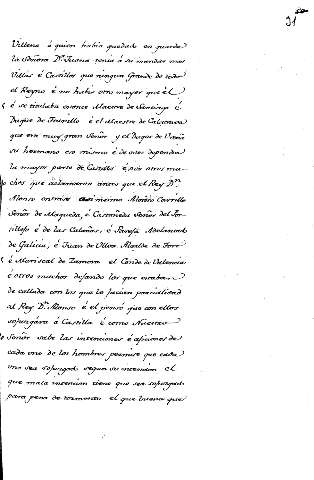 31
Villena á quien había quedado en guarda
la Señora Dª Juana tenia á su mandar mas
Villas é Castillos que ningun Grande de todo
el Reyno é no habia otro mayor que él
é se titulaba entonce Maestre de Santiago é
Duque de Trujillo é el Maestre de Calatrava
que era muy gran Señor y el Duque de Ureña
su hermano eso mismo é de estos dependia
la mayor parte de Castilla é por otros mu-
chos que aclamaron antes que el Rey Dn
Alonso entrase asi mismo Alvaro Carrillo
Señor de Maqueda, é Castañeda Señor del For-
é de las Cabañas, é Pareja Adelantado
de Galicia, é Juan de Ulloa Alcalde de Toro
é Mariscal de Zamora el Conde de Valencia
é otros muchos dejando los que estaban
de callada con los que la facian parcialidad
al Rey Dn Alonso é el pensó que con ellos
sojuzgára á Castilla é como Nuestro
Señor sabe las intenciones é aficiones de
cada uno de los hombres permite que cada
uno sea sojuzgado segun su intencion el
que mala intencion tiene que sea sojuzgado
para pena de tormento el que buena que